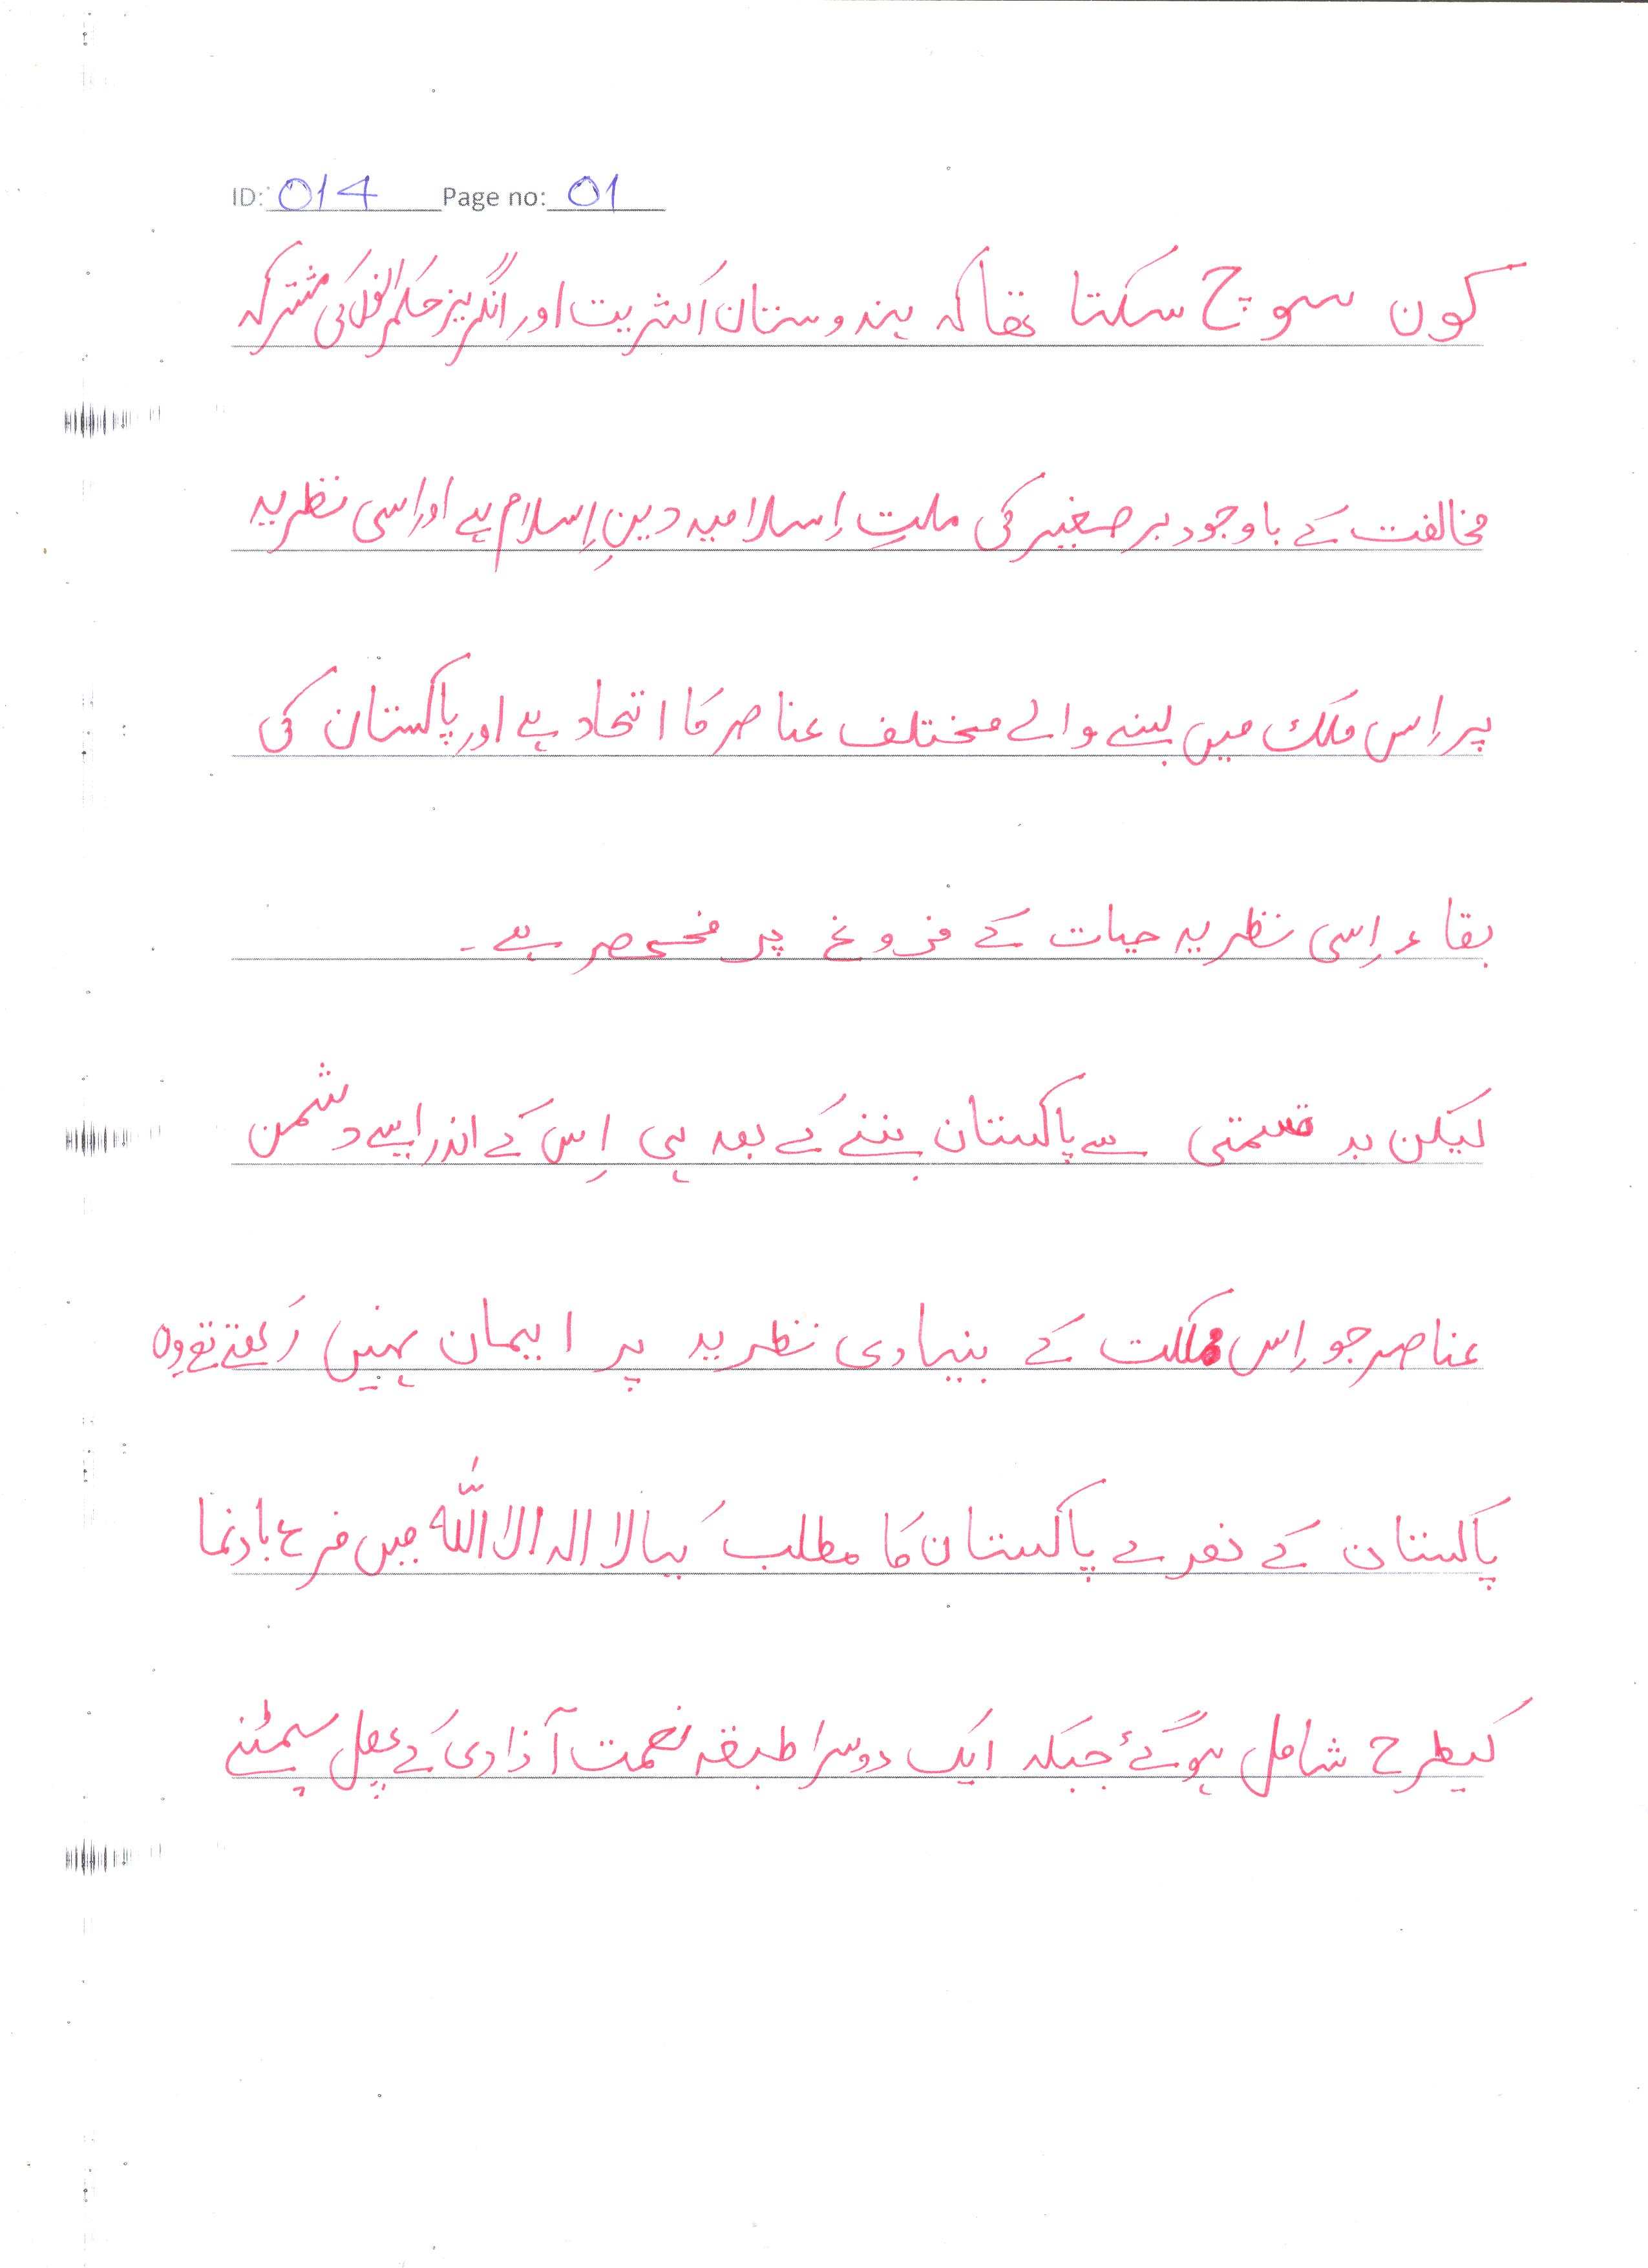 ID: 014 Page no: 01
کون سوچ سکتا تھا کہ ہندوستان اکثریت اور انگریز حکمرانوں کی مشترکہ
مخالفت کے باوجود برصغیر کی ملتِ اِسلامیہ دینِ اِسلام ہے اور اسی نظریہ
پر اِس ملک میں بسنے والے مختلف عناصر کا اتحاد ہے اور پاکستان کی
بقاء اِسی نظریہ حیات کے فروغ پر منحصر ہے۔
لیکن بد قسمتی سے پاکستان بننے کے بعد ہی اِس کے اندر ایسے دشمن
عناصر جو اِس مملکت کے بنیادی نظریہ پر ایمان نہیں رکھتے تھے وہ
پاکستان کے نعرے پاکستان کا مطلب کیا لا الہ الا اللّٰہ میں مرغ بادنما
کیطرح شامل ہوگئے جبکہ ایک دوسرا طبقہ نعمت آزادی کے پھل سمیٹنے